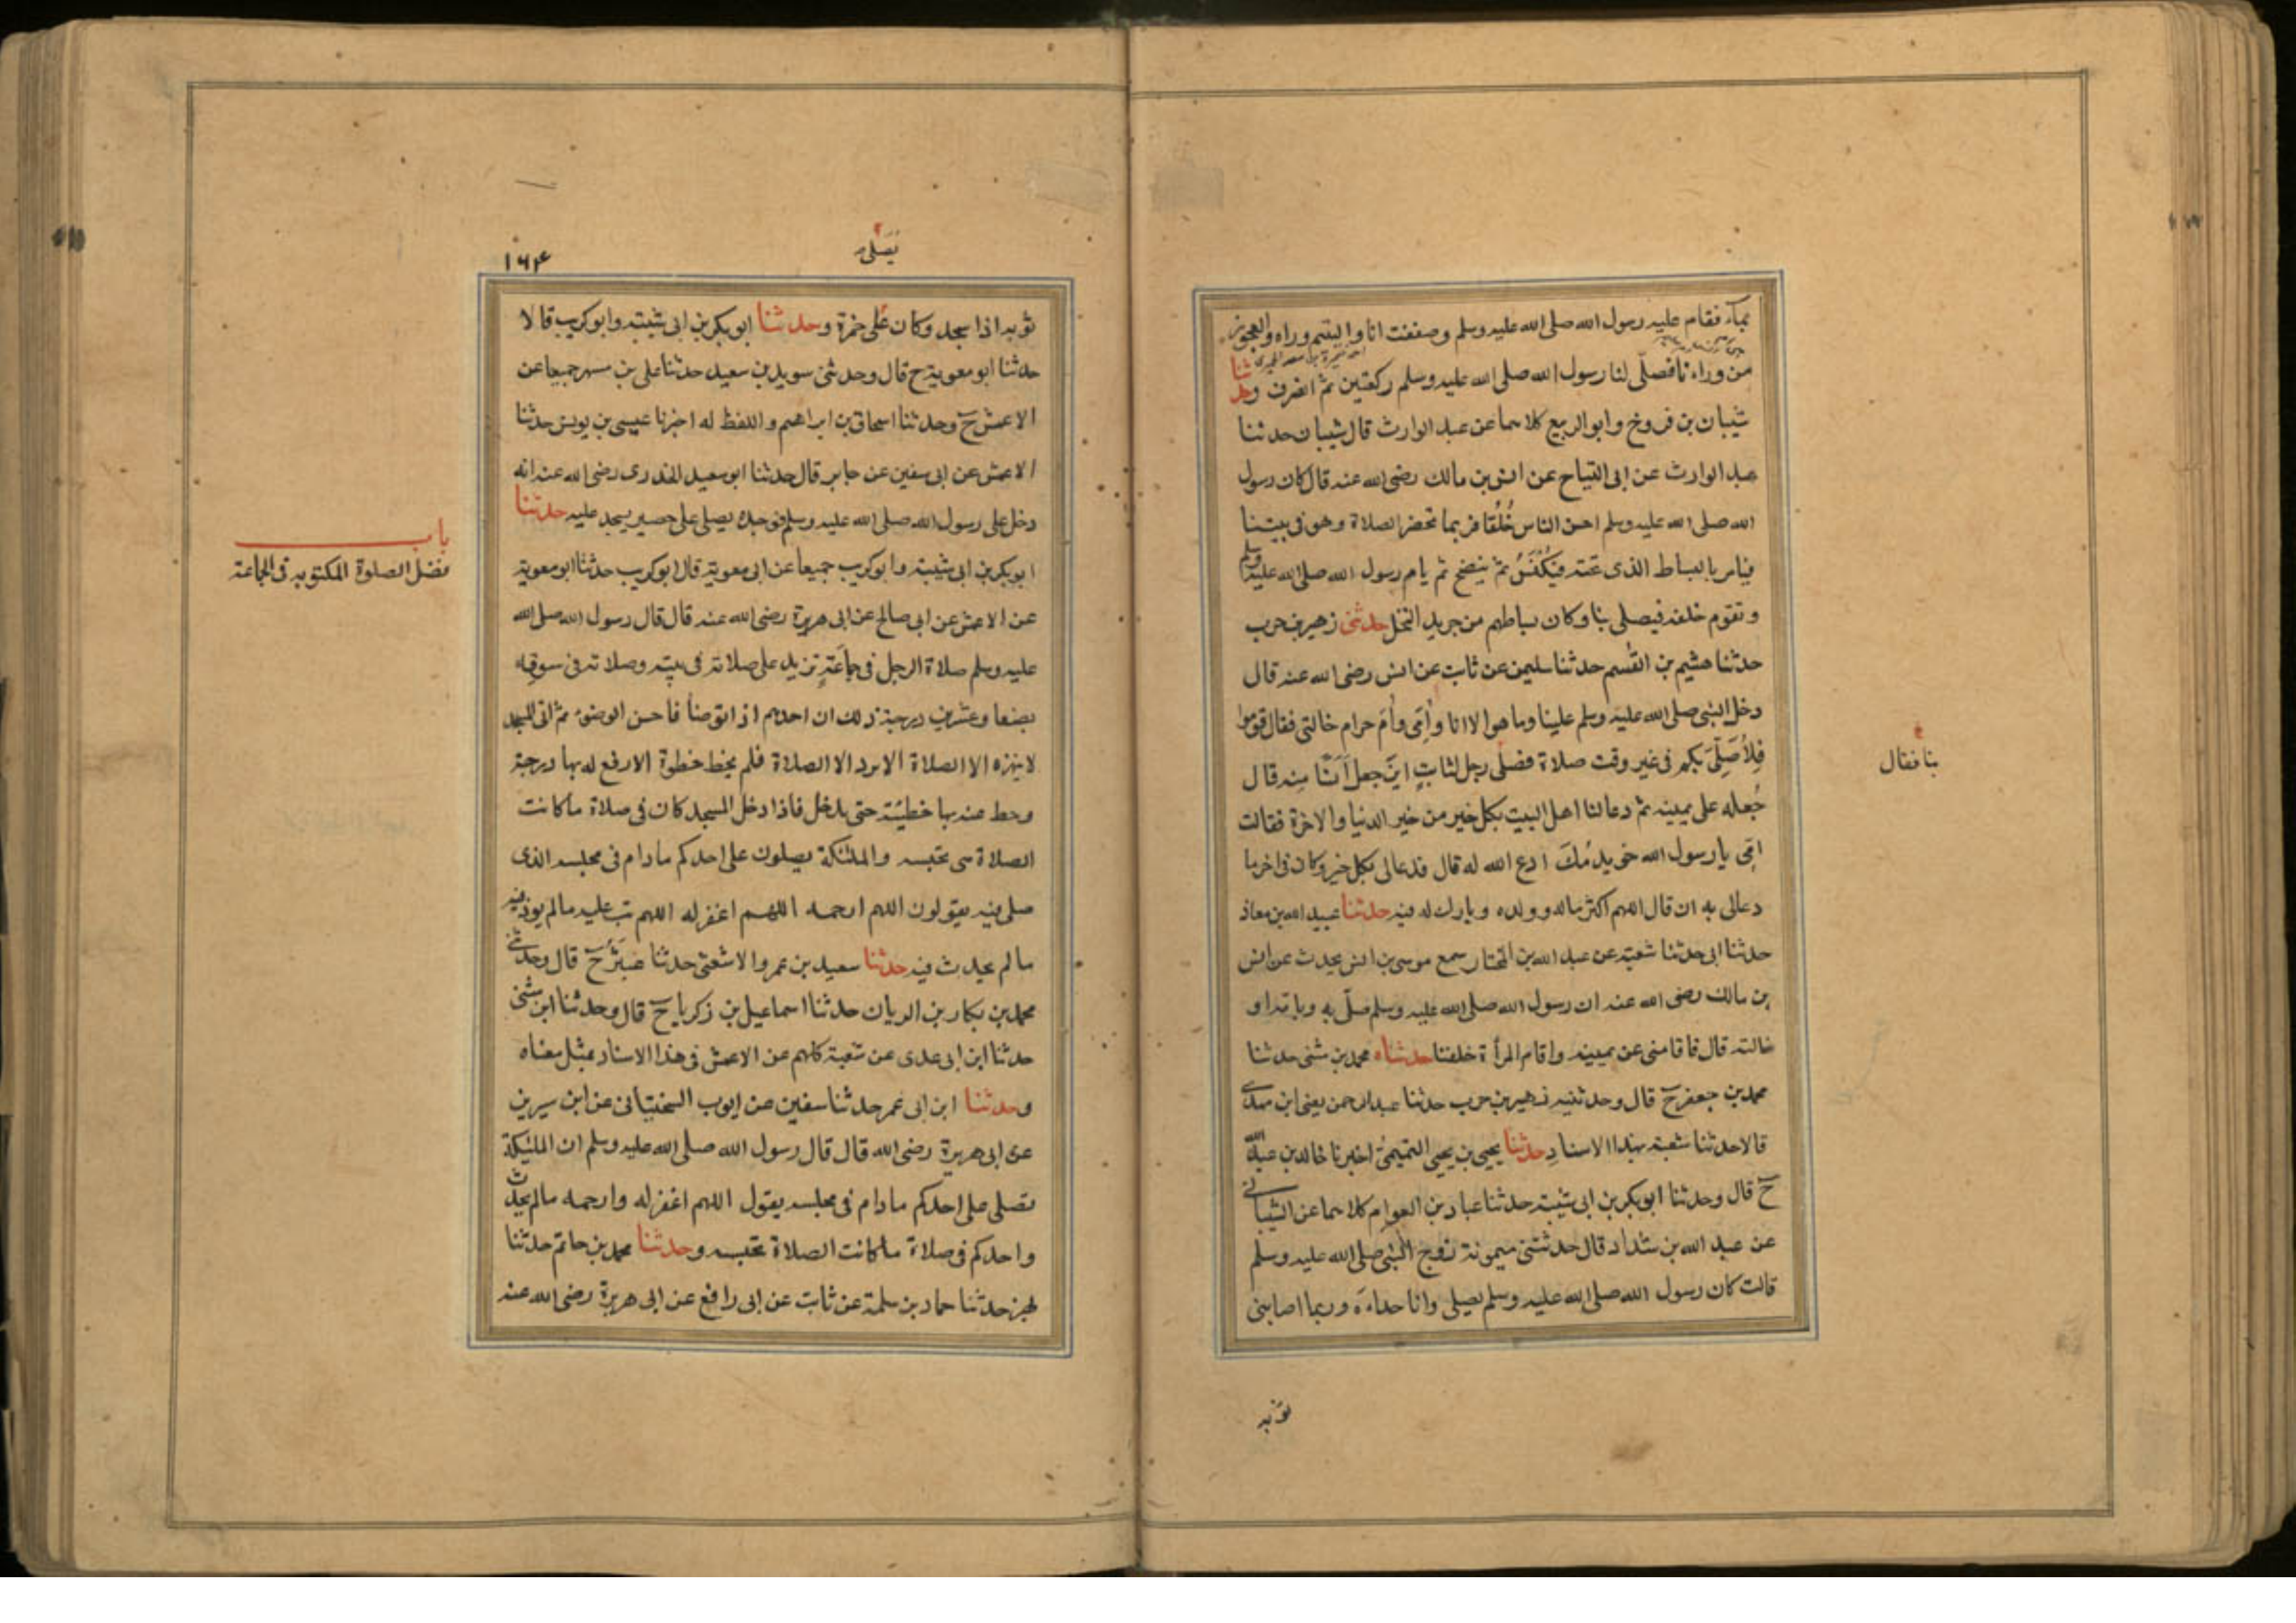 بماء فقام عليه رسول الله صلى الله عليه وسلم وصففت انا واليتيم وراءه والعجوز
من وراءنا فصلّى لنا رسول الله صلى الله عليه وسلم ركعتين ثم انصرف وحدثنا
شيبان بن فروخ وابو الربيع كلاهما عن عبد الوارث قال شيبان حدثنا
عبد الوارث عن ابى التياح عن انس بن مالك رضى الله عنه قال كان رسول
الله صلى الله عليه وسلم احسن الناس خُلُقا فربما تحضر الصلاة وهو فى بيتنا
فيامر بالبساط الذى تحته فيكنس ثم ينضح ثم يام رسول الله صلى الله عليه وسلم
ونقوم خلفه فيصلى بنا وكان بساطهم من جريد النخل حدثنى زهير بن حرب
حدثنا هشيم بن القسم حدثنا سليمن عن ثابت عن انس رضى الله عنه قال
دخل النبى صلى الله عليه وسلم علينا وما هو الا انا وأمى وأم حرام خالتى فقال قوموا
فلأصلّى بكم فى غير وقت صلاة فصلى رجل لثابت اين جعل انسا منه قال
جعله على يمينه ثم دعا لنا اهل البيت بكل خير من خير الدنيا والاخرة فقالت
امى يا رسول الله خويدمك ادع الله له قال فدعا لى بكل خير وكان فى اخر ما
دعا لى به ان قال اللهم اكثر ماله وولده وبارك له فيه حدثنا عبيد الله بن معاذ
حدثنا ابى حدثنا شعبة عن عبد الله بن المختار سمع موسى بن انس يحدث عن انس
بن مالك رضى الله عنه ان رسول الله صلى الله عليه وسلم صلّى به وبامه او
خالته قال فاقامنى عن يمينه واقام المرأة خلفنا حدثناه محمد بن مثنى حدثنا
محمد بن جعفر ح قال وحدثنيه زهير بن حرب حدثنا عبد الرحمن يعنى ابن مهدى
قالا حدثنا شعبة بهذا الاسناد حدثنا يحيى بن يحيى التميمى اخبرنا خالد بن عبد الله
ح قال وحدثنا ابو بكر بن ابى شيبة حدثنا عباد بن العوام كلاهما عن الشيبانى
عن عبد الله بن شداد قال حدثتنى ميمونة زوج النبى صلى الله عليه وسلم
قالت كان رسول الله صلى الله عليه وسلم يصلى وانا حذاءه وربما اصابنى
ثوبه
بنا فقال
يصلى
۱۶۴
ثوبه اذا سجد وكان على خمرة وحدثنا ابو بكر بن ابى شيبة وابو كريب قالا
حدثنا ابو معوية ح قال وحدثنى سويد بن سعيد حدثنا على بن مسهر جميعا عن
الاعمش ح وحدثنا اسحاق بن ابراهيم واللفظ له اخبرنا عيسى بن يونس حدثنا
الاعمش عن ابى سفين عن جابر قال حدثنا ابو سعيد الخدرى رضى الله عنه انه
دخل على رسول الله صلى الله عليه وسلم فوجده يصلى على حصير يسجد عليه حدثنا
ابو بكر بن ابى شيبة وابو كريب جميعا عن ابى معوية قال ابو كريب حدثنا ابو معوية
عن الاعمش عن ابى صالح عن ابى هريرة رضى الله عنه قال قال رسول الله صلى الله
عليه وسلم صلاة الرجل فى جماعة تزيد على صلاته فى بيته وصلاته فى سوقه
بضعا وعشرين درجة ذلك ان احدهم اذا توضا فاحسن الوضوء ثم اتى المسجد
لا ينهزه الا الصلاة لا يريد الا الصلاة فلم يخط خطوة الا رفع له بها درجة
وحط عنه بها خطيئة حتى يدخل فاذا دخل المسجد كان فى صلاة ما كانت
الصلاة هى تحبسه والملئكة يصلون على احدكم ما دام فى مجلسه الذى
صلى فيه يقولون اللهم ارحمه اللهم اغفر له اللهم تب عليه ما لم يوذ فيه
ما لم يحدث فيه حدثنا سعيد بن عمرو الاشعثى حدثنا عبثر ح قال وحدثنى
محمد بن بكار بن الريان حدثنا اسماعيل بن زكريا ح قال وحدثنا ابن مثنى
حدثنا ابن ابى عدى عن شعبة كلهم عن الاعمش فى هذا الاسناد بمثل معناه
وحدثنا ابن ابى عمر حدثنا سفين عن ايوب السختيانى عن ابن سيرين
عن ابى هريرة رضى الله قال قال رسول الله صلى الله عليه وسلم ان الملئكة
تصلى على احدكم ما دام فى مجلسه يقول اللهم اغفر له وارحمه ما لم يحدث
واحدكم فى صلاة ما كانت الصلاة تحبسه وحدثنا محمد بن حاتم حدثنا
بهز حدثنا حماد بن سلمة عن ثابت عن ابى رافع عن ابى هريرة رضى الله عنه
باب
فضل الصلوة المكتوبة فى الجماعة